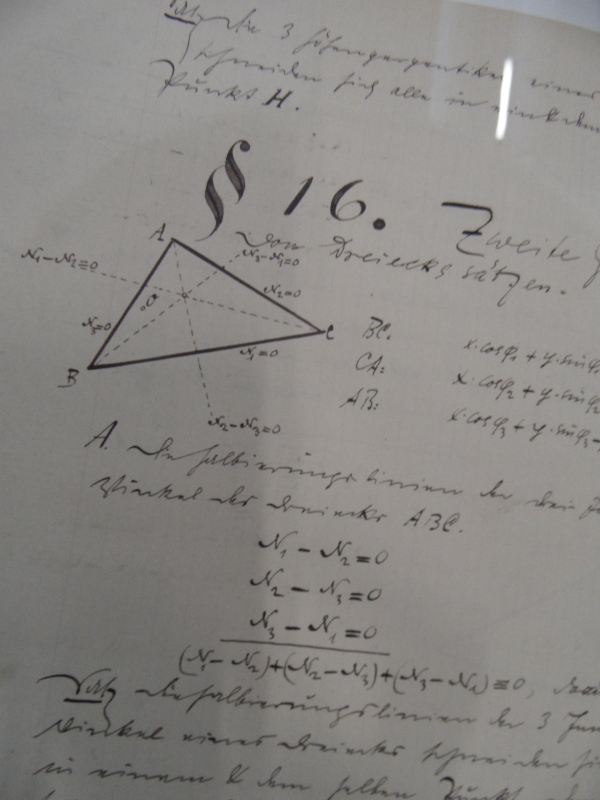 Satz Die 3 Höhenperpendikel eines
schneiden sich alle in ein & dem
Punkt H.
§ 16. Zweite
von Dreieckssätzen.
A
N₁–N₂=0
N₃–N₁=0
N₂=0
O
N₃=0
C
N₁=0
B
N₂–N₃=0
BC:
x·cosφ₁ + y·sinφ₁
CA:
x·cosφ₂ + y·sinφ₂
AB:
x·cosφ₃ + y·sinφ₃–
A. Die Halbierungslinien der drei
Winkel des Dreiecks ABC.
N₁ – N₂ = 0
N₂ – N₃ = 0
N₃ – N₁ = 0
(N₁–N₂)+(N₂–N₃)+(N₃–N₁) ≡ 0,
Satz Die Halbierungslinien der 3
Winkel eines Dreiecks schneiden
in einem & demselben Punkt